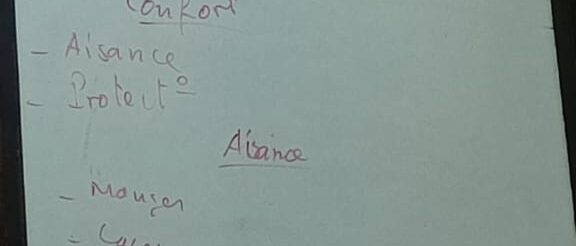 Confort
- Aisance
- Protect°
Aisance
- Manger